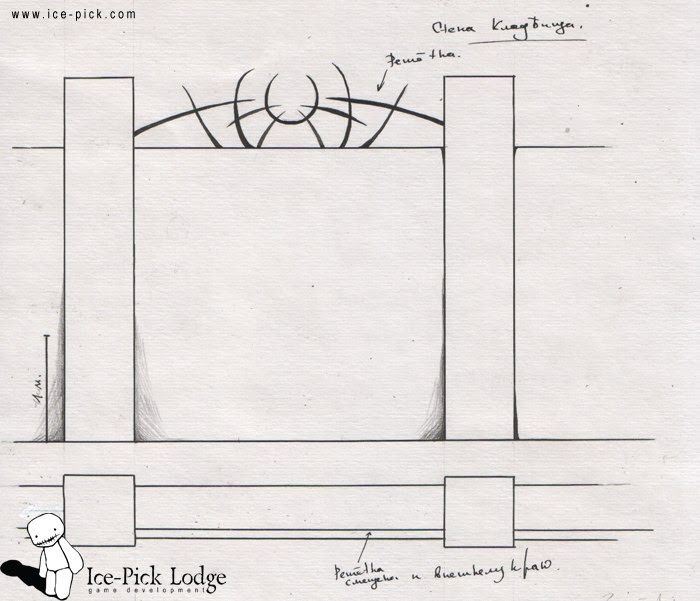 www.ice-pick.com
Стена Кладбища.
Решётка.
1 м.
Решётка
смещена к внешнему краю.
Ice-Pick Lodge
game development